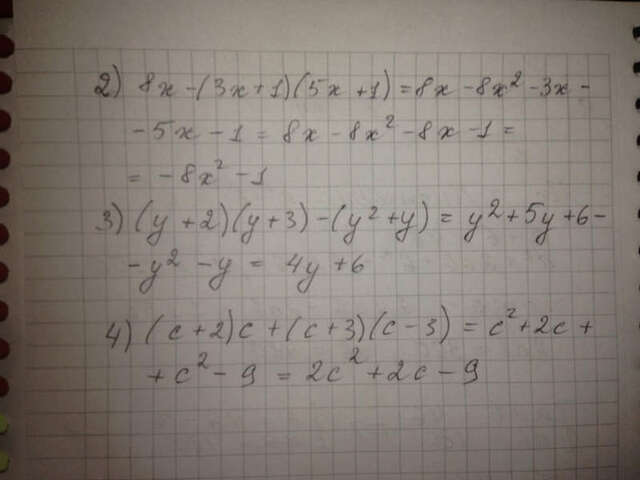 2) 8x - (3x + 1)(5x + 1) = 8x - 8x² - 3x -
- 5x - 1 = 8x - 8x² - 8x - 1 =
= - 8x² - 1
3) (y + 2)(y + 3) - (y² + y) = y² + 5y + 6 -
- y² - y = 4y + 6
4) (c + 2)c + (c + 3)(c - 3) = c² + 2c +
+ c² - 9 = 2c² + 2c - 9